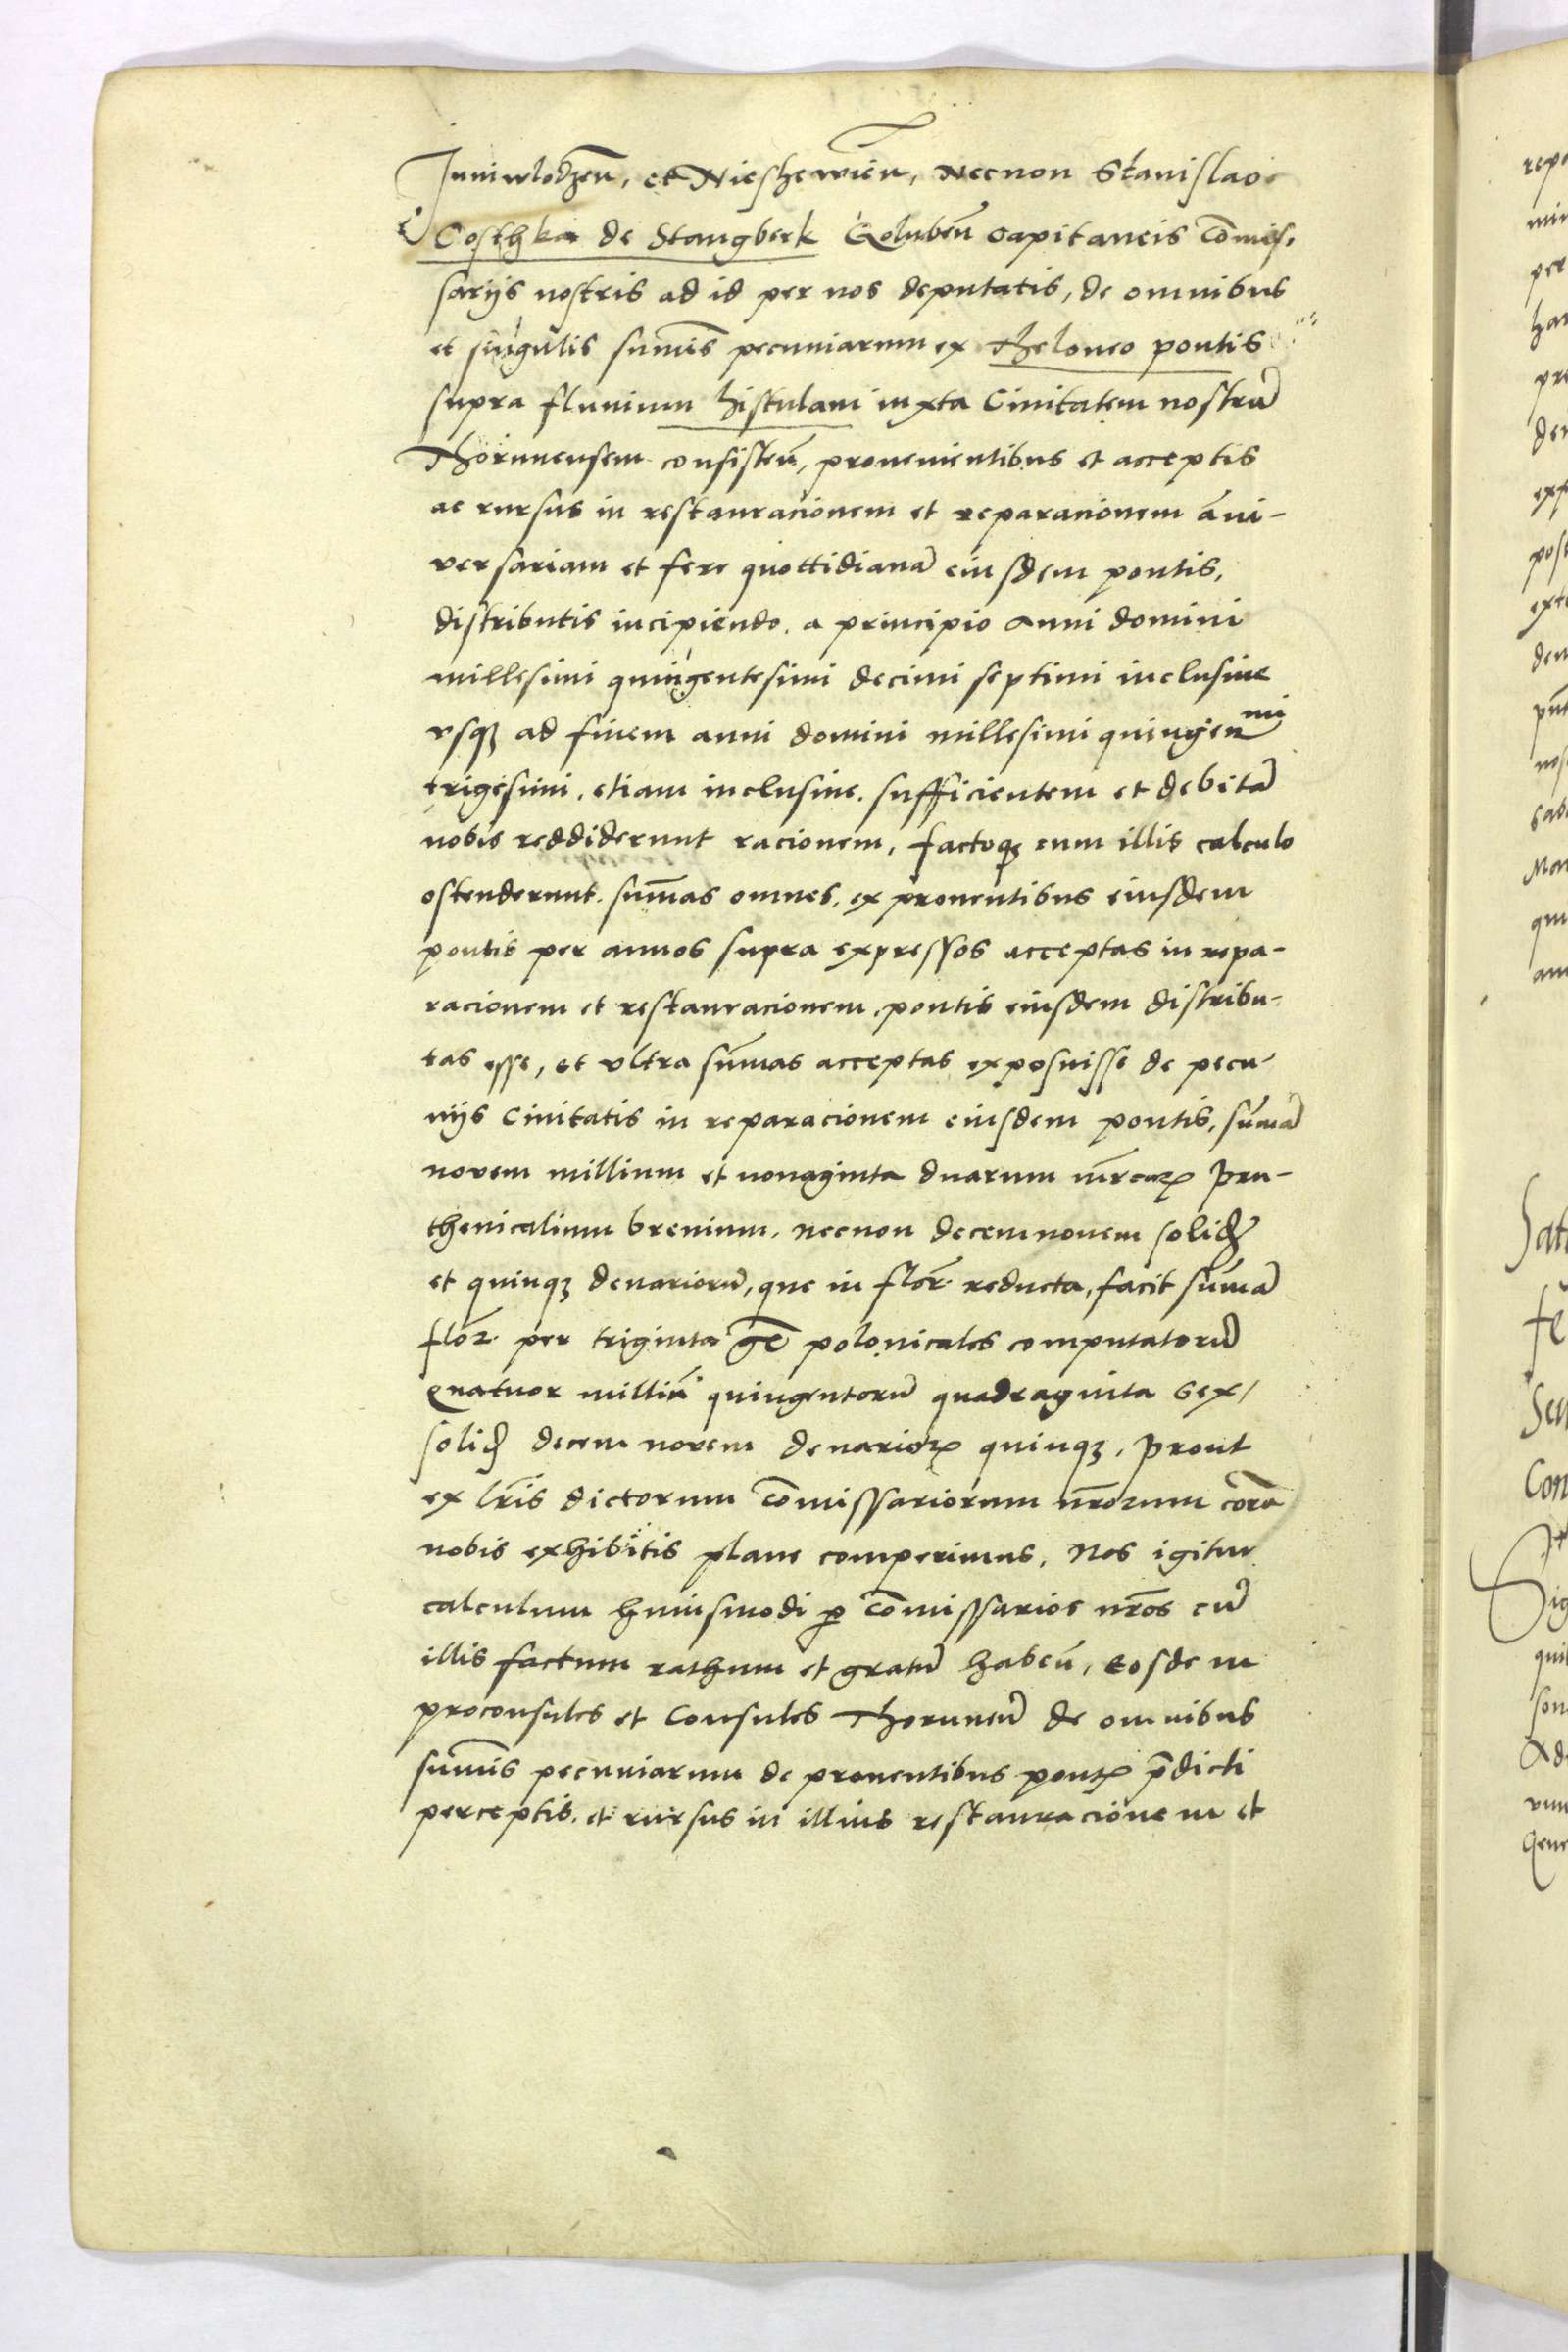 Iuniwlodzen̄, et Nieshewien̄, Necnon Stanislao
Costhka de Stangberk Gołuben̄ capitaneis com̄is,
sarijs nostris ad id per nos deputatis, de omnibus
et singulis sum̄is pecuniarum ex Theloneo pontis
supra fluuium histulam iuxta Ciuitatem nostrā
Thorunensem consisten̄, prouenientibus et acceptis
ac rursus in restauracionem et reparacionem an̄i-
versariam et fere quottidianā eiusdem pontis,
distributis incipiendo. a principio anni domini
millesimi quingentesimi decimi septimi inclusiue
vsqꝫ ad finem anni domini millesimi quingen mi
trigesimi, etiam inclusiue. sufficientem et debitā
nobis reddiderunt racionem, factoqꝫ cum illis calculo
ostenderunt. sum̄as omnes, ex prouentibus eiusdem
pontis per annos supra expressos acceptas in repa-
racionem et restauracionem pontis eiusdem distribu-
tas esse, et vltra sum̄as acceptas exposuisse de pecu-
nijs Ciuitatis in reparacionem eiusdem pontis, sum̄ā
novem millium et nonaginta duarum mrcaꝝ pru-
thenicalium breuium, necnon decemnouem soliđ
et quinqꝫ denariorū, que in flor̄. reducta, facit sum̄ā
flor̄. per triginta gr̄ polonicales computatorū
quatuor milliū quingentorū quadraginta sex,
soliđ decem novem denarioꝝ quinqꝫ, prout
ex lr̄is dictorum com̄issariorum nr̄orum corā
nobis exhibitis plane comperimus, Nos igitur
calculum huiusmodi ꝑ com̄issarios nr̄os cū
illis factum rathum et gratū haben̄, eosdem
proconsules et Consules Thorunen̄ de omnibus
sum̄is pecuniarum de prouentibus pontꝭ p̄dicti
perceptis. et rursus in illius restauracionem et